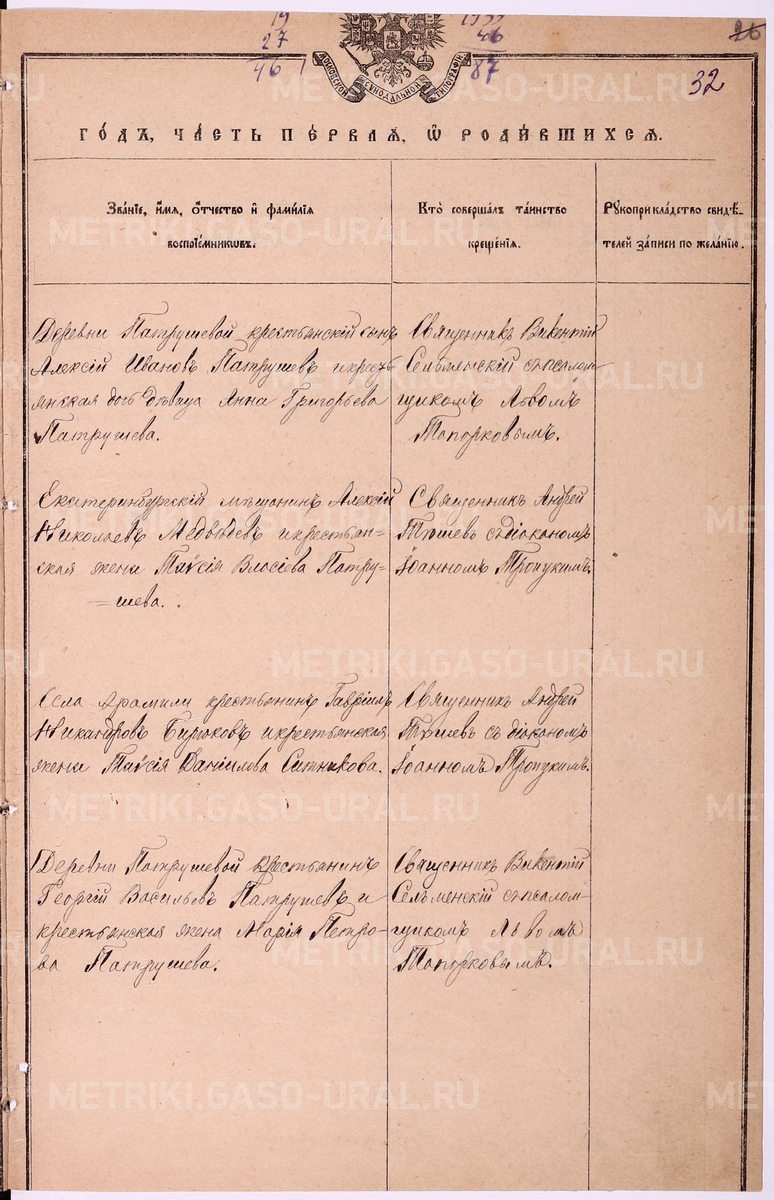 19
27
46
1933
46
87
26
32
МОСКОВСКОЙ СѴНОДАЛЬНОЙ ТИПОГРАФІИ
ГО́ДЪ, ЧА́СТЬ ПЕ́РВАѦ, Ѽ РОДИ́ВШИХСѦ.
Зва́нїе, и҆́мѧ, ѻ҆́тчество и҆ фами́лїѧ
воспрїе́мникѡвъ.
Кто̀ соверша́лъ та́инство
креще́нїѧ.
Рꙋкоприкла́дство свидѣ́-
телей за́писи по жела́нїю.
Деревни Патрушевой крестьянскій сынъ
Алексій Ивановъ Патрушевъ и кресть
янская дочь дѣвица Анна Григорьева
Патрушева.
Священникъ Викентій
Сельменскій съ псалом-
щикомъ Львомъ
Топорковымъ.
Екатеринбургскій мѣщанинъ Алексій
Николаевъ Медвѣдевъ и крестьян=
ская жена Таисія Власіева Патру-
=шева.
Священникъ Андрей
съ діакономъ
Іоанномъ Троицкимъ.
Села Арамили крестьянинъ Гавріилъ
Никандровъ Бирюковъ и крестьянская
жена Таисія Даніилова Ситникова.
Священникъ Андрей
съ діакономъ
Іоанномъ Троицкимъ.
Деревни Патрушевой крестьянинъ
Георгій Васильевъ Патрушевъ и
крестьянская жена Марія Петро-
ва Патрушева.
Священникъ Викентій
Сельменскій съ псалом-
щикомъ Львомъ
Топорковымъ.
METRIKI.GASO-URAL.RU